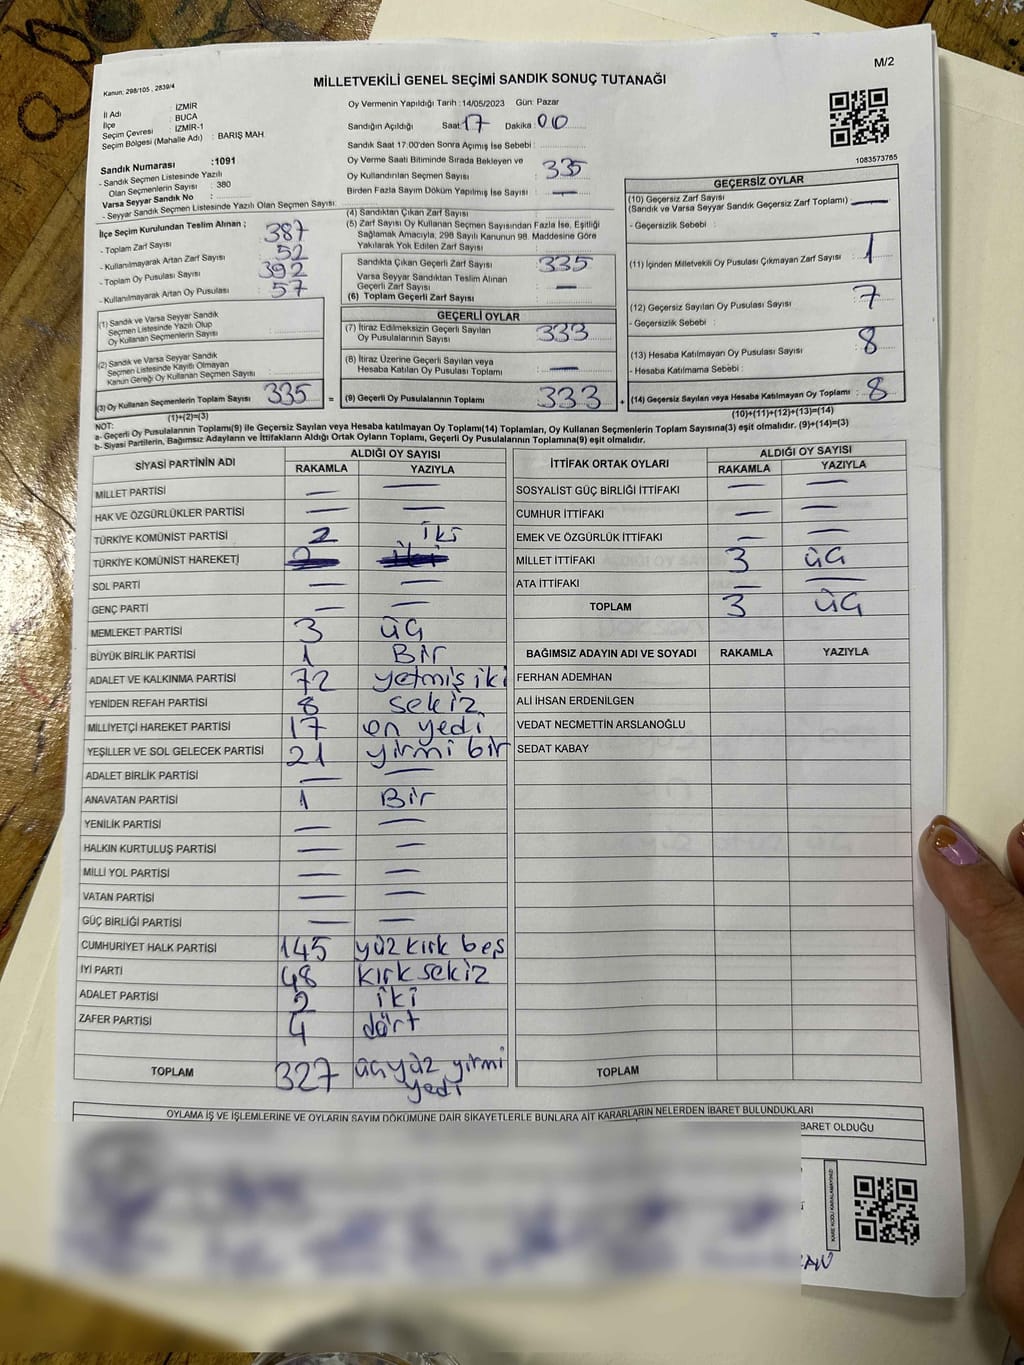 M/2
Kanun: 298/105 , 2839/4
MİLLETVEKİLİ GENEL SEÇİMİ SANDIK SONUÇ TUTANAĞI
İl Adı : İZMİR
İlçe : BUCA
Seçim Çevresi : İZMİR-1
Seçim Bölgesi (Mahalle Adı) : BARIŞ MAH.
Sandık Numarası :1091
- Sandık Seçmen Listesinde Yazılı
Olan Seçmenlerin Sayısı : 380
Varsa Seyyar Sandık No :
- Seyyar Sandık Seçmen Listesinde Yazılı Olan Seçmen Sayısı:
Oy Vermenin Yapıldığı Tarih :14/05/2023 Gün: Pazar
Sandığın Açıldığı Saat: 17 Dakika: 00
Sandık Saat 17.00'den Sonra Açımış İse Sebebi :
Oy Verme Saati Bitiminde Sırada Bekleyen ve
Oy Kullandırılan Seçmen Sayısı : 335
Birden Fazla Sayım Döküm Yapılmış İse Sayısı : —
1083573765
İlçe Seçim Kurulundan Teslim Alınan ;
- Toplam Zarf Sayısı : 387
- Kullanılmayarak Artan Zarf Sayısı : 52
- Toplam Oy Pusulası Sayısı : 392
- Kullanılmayarak Artan Oy Pusulası : 57
(1) Sandık ve Varsa Seyyar Sandık
Seçmen Listesinde Yazılı Olup
Oy Kullanan Seçmenlerin Sayısı :
(2) Sandık ve Varsa Seyyar Sandık
Seçmen Listesinde Kayıtlı Olmayan
Kanun Gereği Oy Kullanan Seçmen Sayısı :
(3) Oy Kullanan Seçmenlerin Toplam Sayısı : 335
(1)+(2)=(3)
(4) Sandıktan Çıkan Zarf Sayısı :
(5) Zarf Sayısı Oy Kullanan Seçmen Sayısından Fazla İse, Eşitliği
Sağlamak Amacıyla, 298 Sayılı Kanunun 98. Maddesine Göre
Yakılarak Yok Edilen Zarf Sayısı :
Sandıkta Çıkan Geçerli Zarf Sayısı : 335
Varsa Seyyar Sandıktan Teslim Alınan
Geçerli Zarf Sayısı : —
(6) Toplam Geçerli Zarf Sayısı :
GEÇERLİ OYLAR
(7) İtiraz Edilmeksizin Geçerli Sayılan
Oy Pusulalarının Sayısı : 333
(8) İtiraz Üzerine Geçerli Sayılan veya
Hesaba Katılan Oy Pusulası Toplamı : —
= (9) Geçerli Oy Pusulalarının Toplamı : 333 +
GEÇERSİZ OYLAR
(10) Geçersiz Zarf Sayısı
(Sandık ve Varsa Seyyar Sandık Geçersiz Zarf Toplamı) : —
- Geçersizlik Sebebi :
(11) İçinden Milletvekili Oy Pusulası Çıkmayan Zarf Sayısı : 1
(12) Geçersiz Sayılan Oy Pusulası Sayısı : 7
- Geçersizlik Sebebi :
(13) Hesaba Katılmayan Oy Pusulası Sayısı : 8
- Hesaba Katılmama Sebebi :
(14) Geçersiz Sayılan veya Hesaba Katılmayan Oy Toplamı : 8
(10)+(11)+(12)+(13)=(14)
NOT:
a- Geçerli Oy Pusulalarının Toplamı(9) ile Geçersiz Sayılan veya Hesaba katılmayan Oy Toplamı(14) Toplamları, Oy Kullanan Seçmenlerin Toplam Sayısına(3) eşit olmalıdır. (9)+(14)=(3)
b- Siyasi Partilerin, Bağımsız Adayların ve İttifakların Aldığı Ortak Oyların Toplamı, Geçerli Oy Pusulalarının Toplamına(9) eşit olmalıdır.
SİYASİ PARTİNİN ADI ALDIĞI OY SAYISI
RAKAMLA YAZIYLA
MİLLET PARTİSİ — —
HAK VE ÖZGÜRLÜKLER PARTİSİ — —
TÜRKİYE KOMÜNİST PARTİSİ 2 iki
TÜRKİYE KOMÜNİST HAREKETİ 2 iki
SOL PARTİ — —
GENÇ PARTİ — —
MEMLEKET PARTİSİ 3 üç
BÜYÜK BİRLİK PARTİSİ 1 Bir
ADALET VE KALKINMA PARTİSİ 72 yetmiş iki
YENİDEN REFAH PARTİSİ 8 sekiz
MİLLİYETÇİ HAREKET PARTİSİ 17 on yedi
YEŞİLLER VE SOL GELECEK PARTİSİ 21 yirmi bir
ADALET BİRLİK PARTİSİ — —
ANAVATAN PARTİSİ 1 Bir
YENİLİK PARTİSİ — —
HALKIN KURTULUŞ PARTİSİ — —
MİLLİ YOL PARTİSİ — —
VATAN PARTİSİ — —
GÜÇ BİRLİĞİ PARTİSİ — —
CUMHURİYET HALK PARTİSİ 145 yüz kırk beş
İYİ PARTİ 48 kırk sekiz
ADALET PARTİSİ 2 iki
ZAFER PARTİSİ 4 dört
TOPLAM 327 üçyüz yirmi
yedi
İTTİFAK ORTAK OYLARI ALDIĞI OY SAYISI
RAKAMLA YAZIYLA
SOSYALİST GÜÇ BİRLİĞİ İTTİFAKI — —
CUMHUR İTTİFAKI — —
EMEK VE ÖZGÜRLÜK İTTİFAKI — —
MİLLET İTTİFAKI 3 üç
ATA İTTİFAKI — —
TOPLAM 3 üç
BAĞIMSIZ ADAYIN ADI VE SOYADI RAKAMLA YAZIYLA
FERHAN ADEMHAN
ALİ İHSAN ERDENİLGEN
VEDAT NECMETTİN ARSLANOĞLU
SEDAT KABAY
TOPLAM
OYLAMA İŞ VE İŞLEMLERİNE VE OYLARIN SAYIM DÖKÜMÜNE DAİR ŞİKAYETLERLE BUNLARA AİT KARARLARIN NELERDEN İBARET BULUNDUKLARI
BARET OLDUĞU
KARE KODU KARALAMAYINIZ!